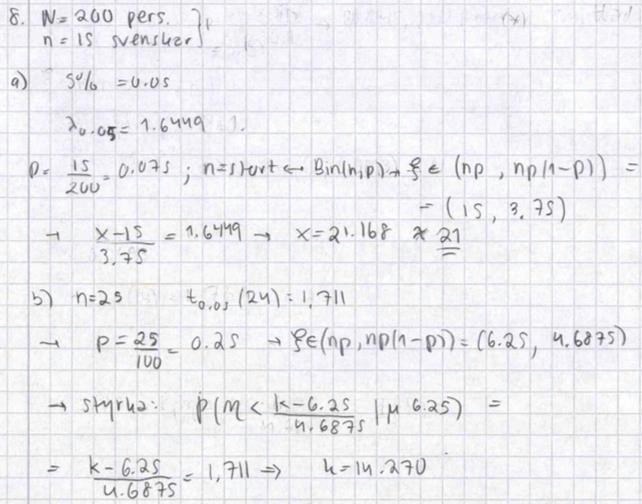 8. N = 200 pers.
n = 15 svenskar
a) 5% = 0.05
λ0.05 = 1.6449
p = 15/200 = 0.075 ; n = stort ↔ Bin(n,p) → ξ ∈ (np, np(1-p)) =
= (15, 3.75)
→ x-15/3.75 = 1.6449 → x = 21.168 ≈ 21
b) n = 25 t0.05 (24) = 1,711
→ p = 25/100 = 0.25 → ξ ∈ (np, np(1-p)) = (6.25, 4.6875)
→ styrka: P(M < k-6.25/4.6875 | μ 6.25) =
= k-6.25/4.6875 = 1,711 ⇒ k = 14.270